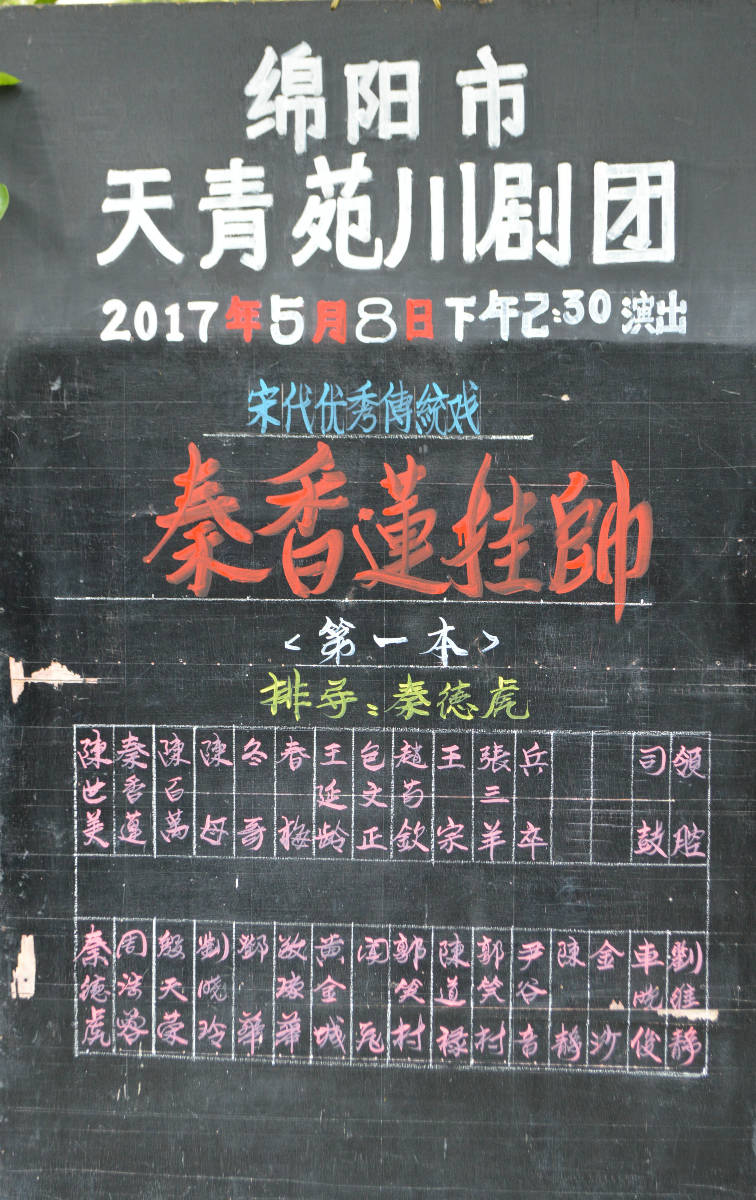 绵阳市
天青苑川剧团
2017年5月8日下午2:30演出
宋代优秀傳統戏
秦香蓮挂帥
<第一本>
排导:秦德虎
陳世美
秦香蓮
陳百萬
陳母
冬哥
春梅
王延龄
包文正
趙荀欽
王宗
張三羊
兵卒
司鼓
領腔
秦德虎
周浩蓉
殷天荣
劉晓玲
鄧華
黄金城
郭笑村
陳道禄
郭笑村
尹谷音
陳静
金沙
車晓俊
劉佳静